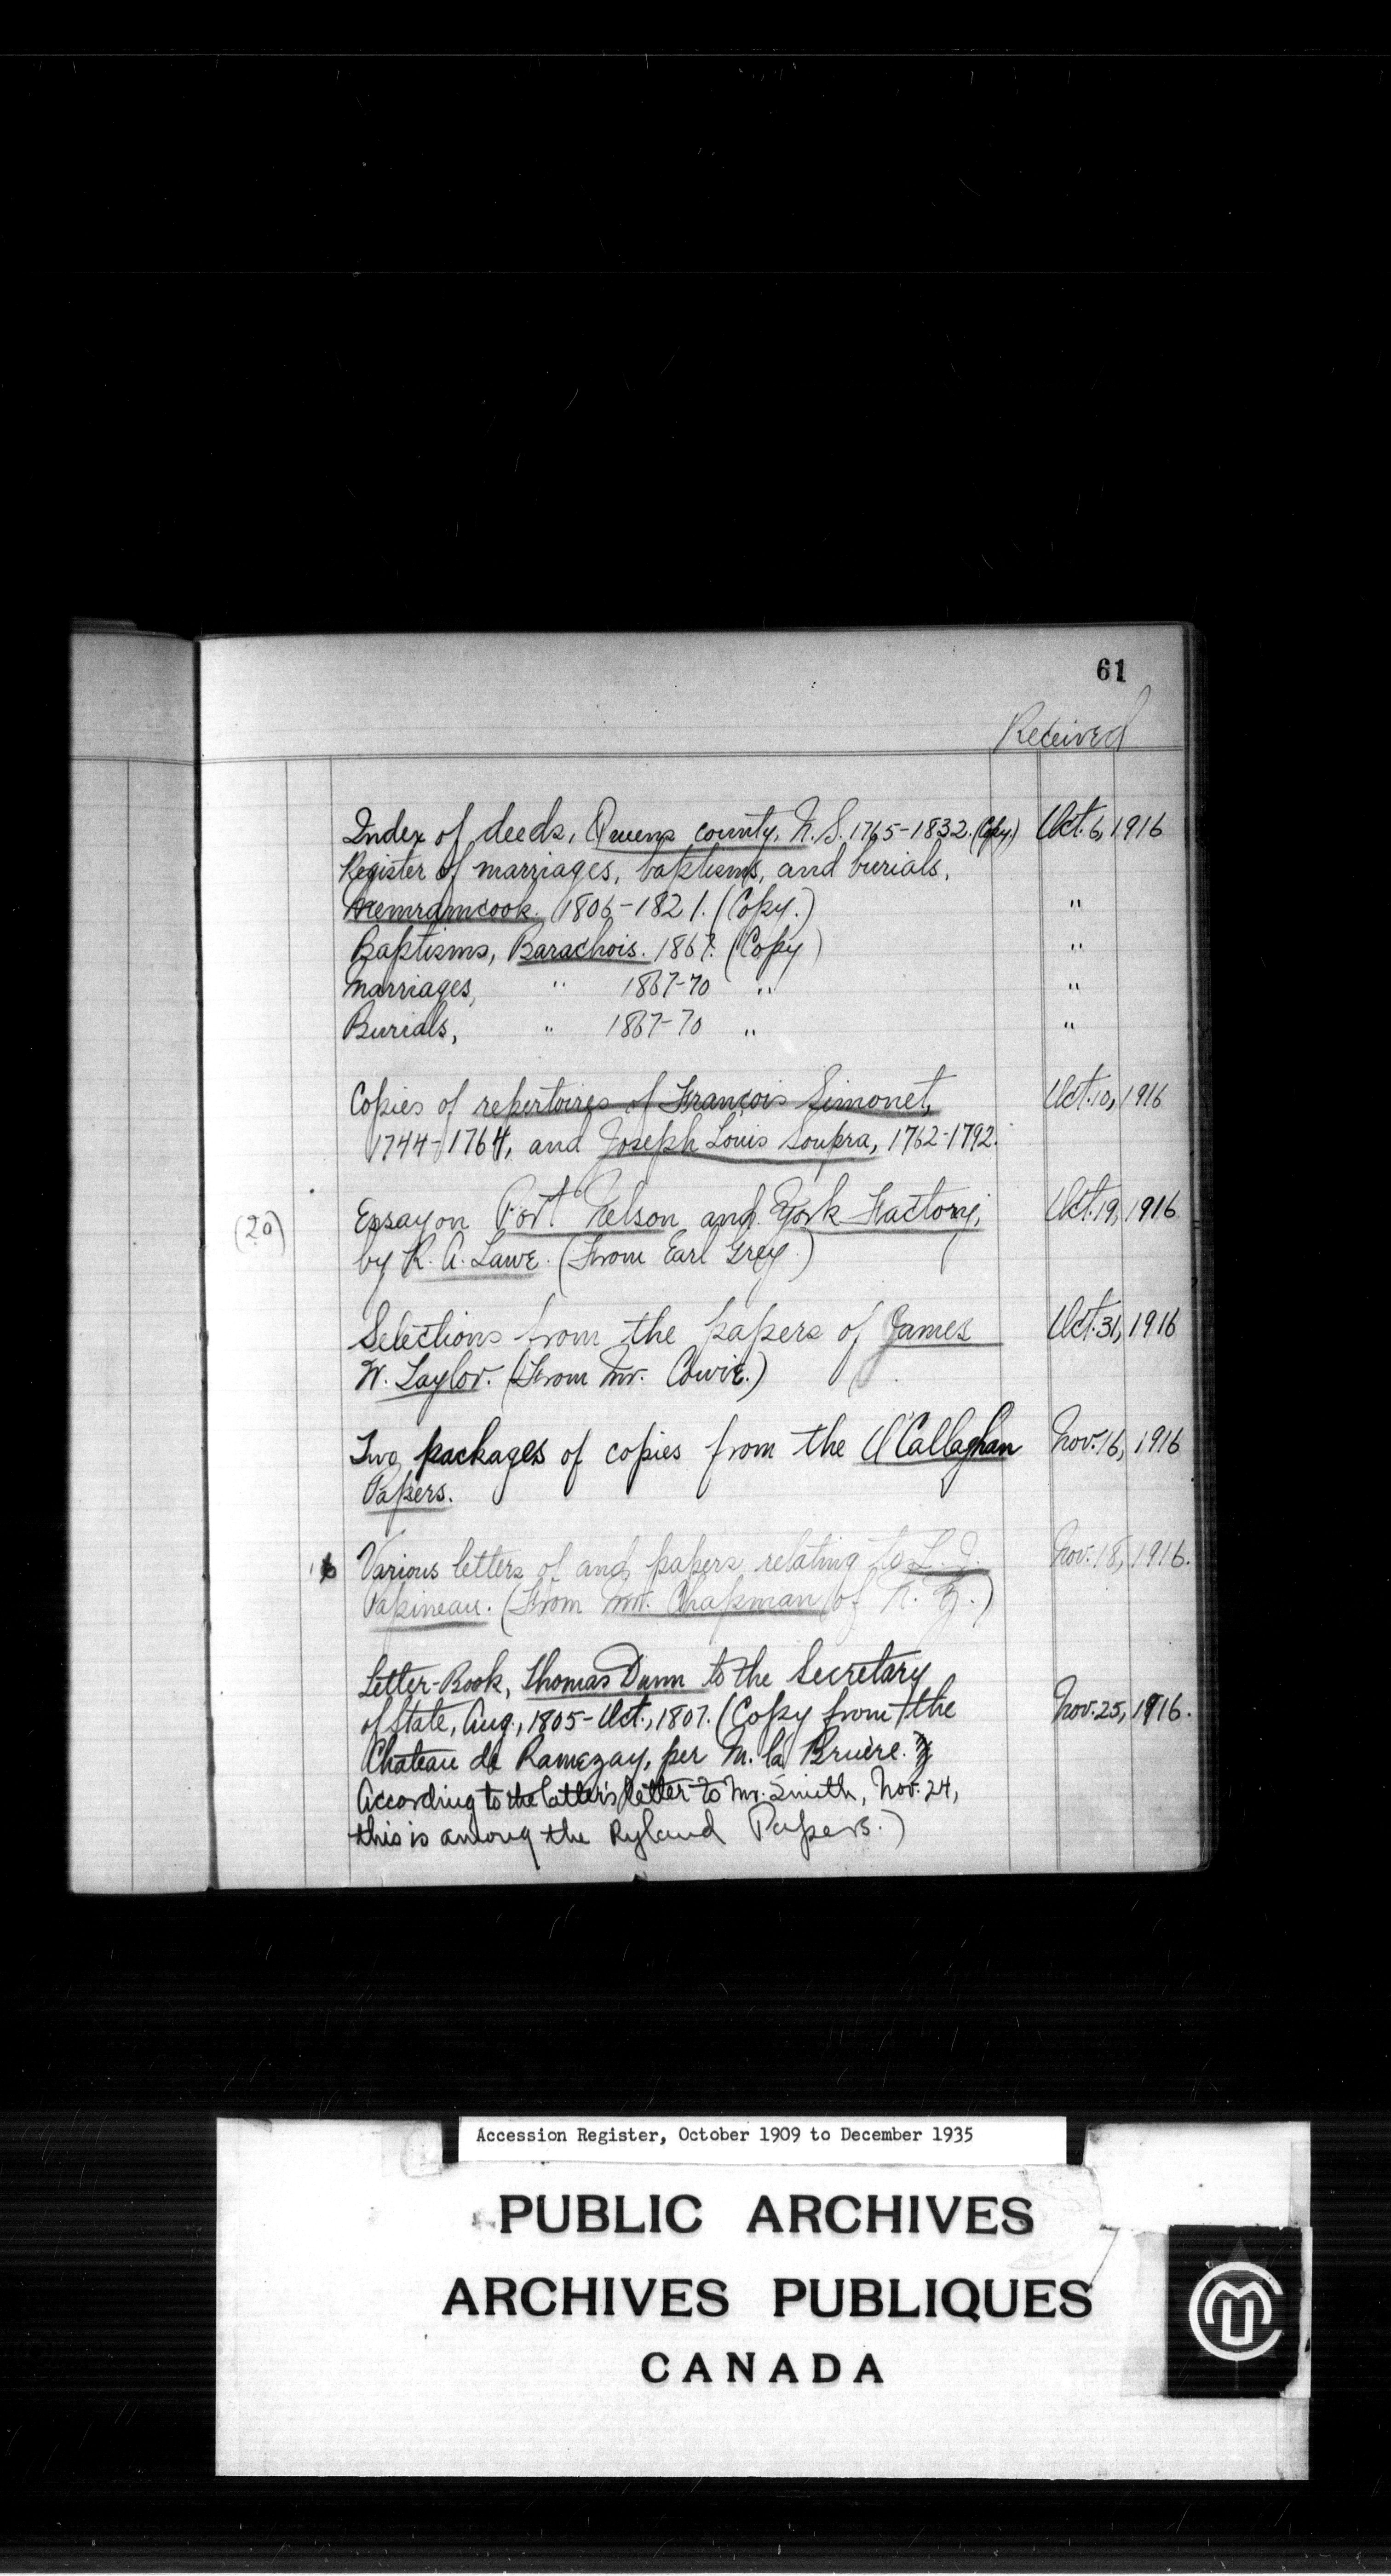 61
Received
Index of deeds, Queens county, N.S. 1765-1832. (Copy.) Oct. 6, 1916
Register of marriages, baptisms, and burials,
Memramcook. 1806-1821. (Copy.) "
Baptisms, Barachois. 1867. (Copy) "
Marriages, " 1867-70 " "
Burials, " 1867-70 " "
Copies of repertoires of François Simonet, Oct. 10, 1916
1744-1764, and Joseph Louis Soupra, 1762-1792.
(20) Essay on Port Nelson and York Factory, Oct. 19, 1916
by R. A. Lawe. (From Earl Grey.)
Selections from the papers of James Oct. 31, 1916
W. Taylor. (From Mr. Cowie.)
Two packages of copies from the O'Callaghan Nov. 16, 1916
Papers.
Various letters of and papers relating to L. J. Nov. 18, 1916.
Papineau. (From Mr. Chapman of N. Z.)
Letter-Book, Thomas Dunn to the Secretary
of State, Aug., 1805-Oct., 1807. (Copy from the Nov. 25, 1916.
Chateau de Ramezay, per M. la Bruère.
According to the latter's letter to Mr. Smith, Nov. 24,
this is among the Ryland Papers.)
Accession Register, October 1909 to December 1935
PUBLIC ARCHIVES
ARCHIVES PUBLIQUES
CANADA